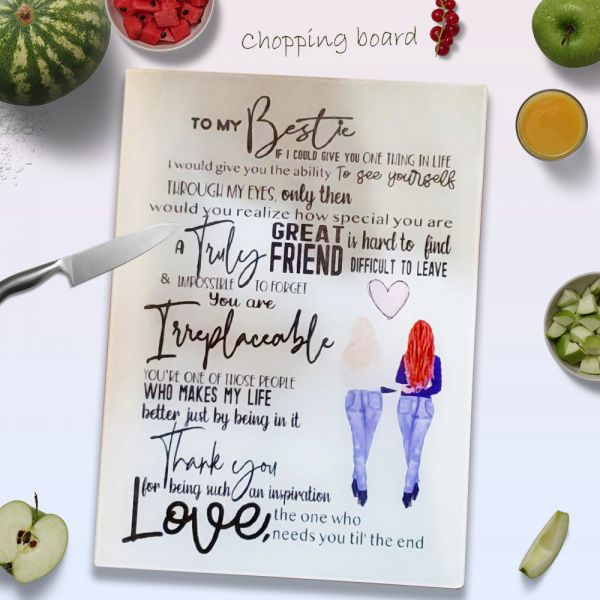 Chopping board
TO MY Bestie
IF I COULD GIVE YOU ONE THING IN LIFE
I would give you the ability To see yourself
THROUGH MY EYES, only then
would you realize how special you are
A Truly GREAT FRIEND is hard to find
DIFFICULT TO LEAVE
& IMPOSSIBLE TO FORGET
You are
Irreplaceable
YOU'RE ONE OF THOSE PEOPLE
WHO MAKES MY LIFE
better just by being in it
Thank you
for being such an inspiration
Love, the one who
needs you til' the end